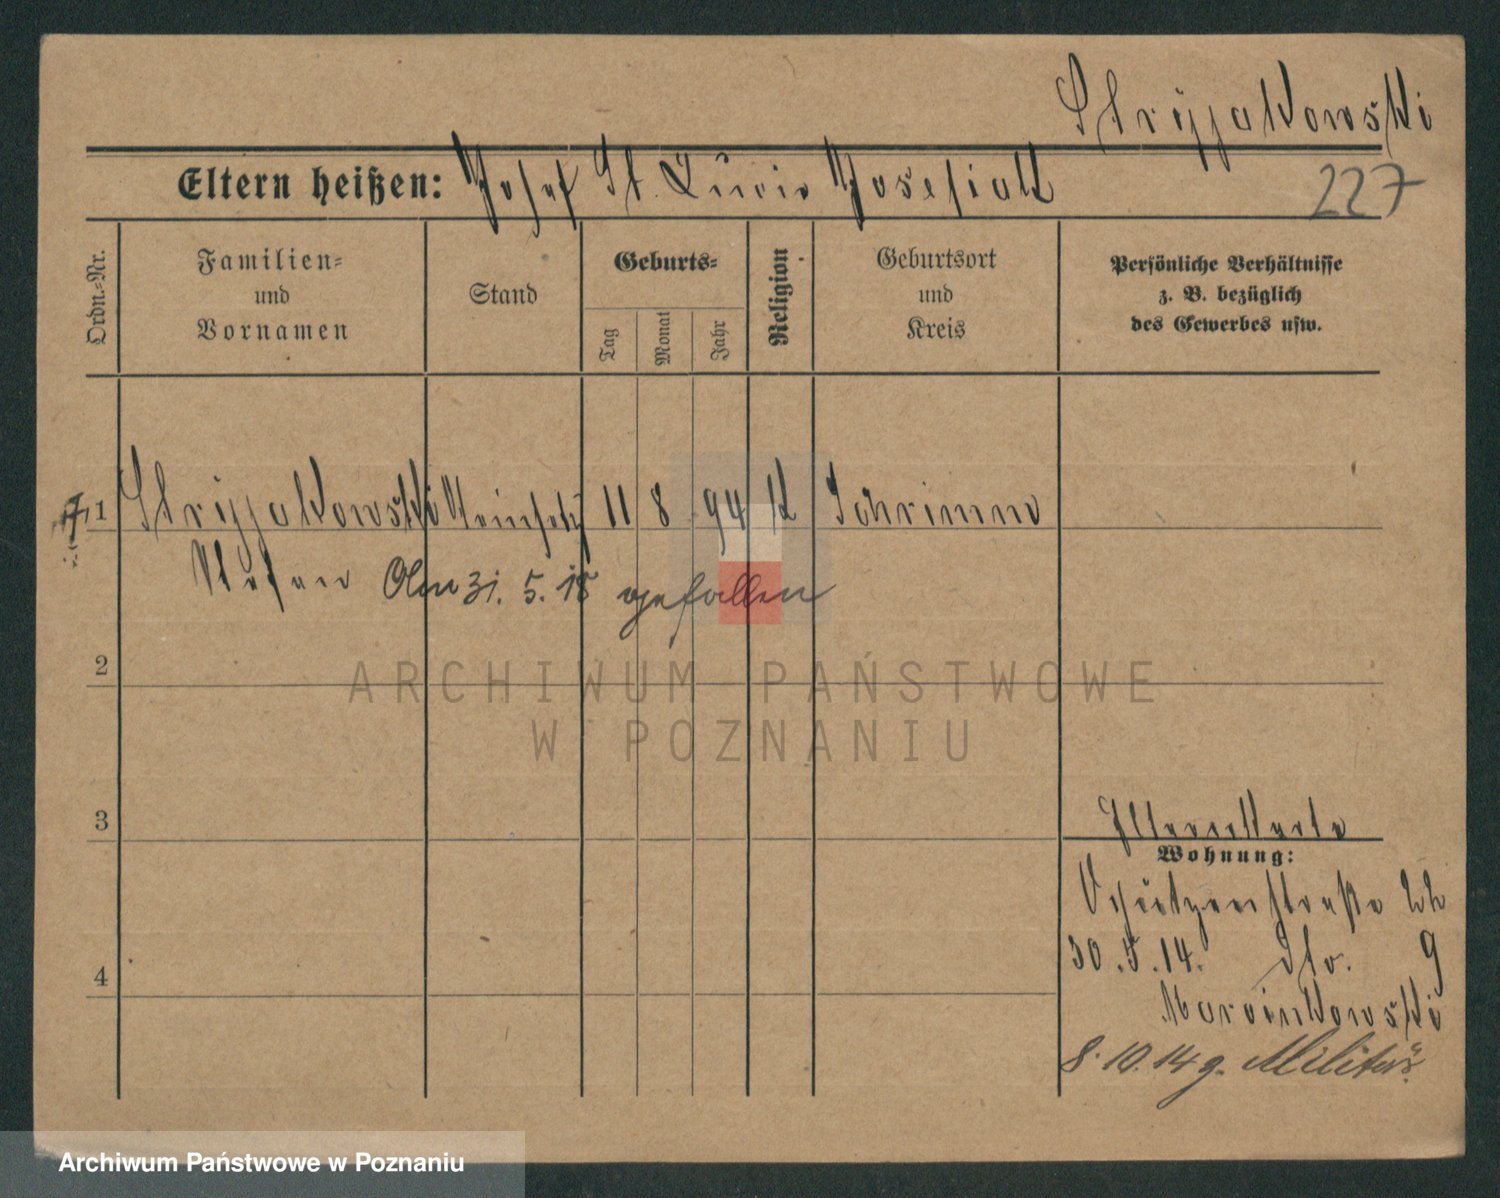 Stryjakowski
Eltern heißen: Josef St. Lucie Josefiak
227
Ordn.-Nr.
Familien-
und
Vornamen
Stand
Geburts-
Tag
Monat
Jahr
Religion
Geburtsort
und
Kreis
Persönliche Verhältnisse
z. B. bezüglich
des Gewerbes usw.
1 Stryjakowski 11 8 94 K Schrimm
Stefan Am 31. 5. 18 gefallen
2
ARCHIWUM PAŃSTWOWE
W POZNANIU
3
Elternkarte
Wohnung:
Schützenstraße 22
30.5.14. Str. 9
Marcinkowski
8.10.14 z. Militär.
4
Archiwum Państwowe w Poznaniu